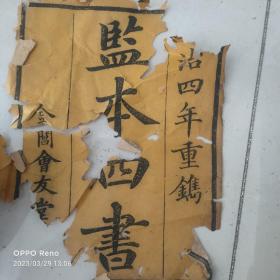 治四年重鐫
監本四書
金閶會友堂
OPPO Reno
2023/03/29 13:06